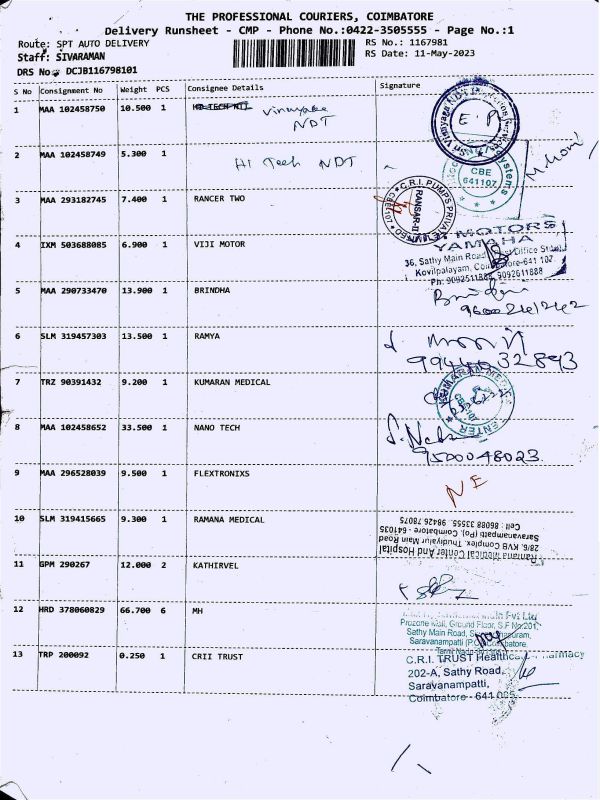 THE PROFESSIONAL COURIERS, COIMBATORE
Delivery Runsheet - CMP - Phone No.:0422-3505555 - Page No.:1
Route: SPT AUTO DELIVERY
RS No.: 1167981
Staff: SIVARAMAN
RS Date: 11-May-2023
DRS No.: DCJB116798101
S No Consignment No Weight PCS Consignee Details Signature
1 MAA 102458750 10.500 1 Vinayaka
NDT
2 MAA 102458749 5.300 1 Hi Tech NDT
CBE
641107
3 MAA 293182745 7.400 1 RANCER TWO
C.R.I. PUMPS PRIVATE
MOTORS
YAMAHA
4 IXM 503688085 6.900 1 VIJI MOTOR
36, Sathy Main Road
Kovilpalayam
Ph: 9092511888
5 MAA 290733470 13.900 1 BRINDHA
6 SLM 319457303 13.500 1 RAMYA
7 TRZ 90391432 9.200 1 KUMARAN MEDICAL
8 MAA 102458652 33.500 1 NANO TECH
9500048023
9 MAA 296528039 9.500 1 FLEXTRONIXS
NE
10 SLM 319415665 9.300 1 RAMANA MEDICAL
Ramana Medical Center And Hospital
28/6, KVB Complex, Thudiyalur Main Road
Saravanampatti (Po), Coimbatore - 641035
Cell : 86088 33555, 98426 78075
11 GPM 290267 12.000 2 KATHIRVEL
12 HRD 378060829 66.700 6 MH
Pvt Ltd
Prozone Mall, Ground Floor, S.F No:201,
Sathy Main Road,
Saravanampatti
13 TRP 200092 0.250 1 CRII TRUST
C.R.I. TRUST Healthcare Pharmacy
202-A, Sathy Road,
Saravanampatti,
Coimbatore - 641 035